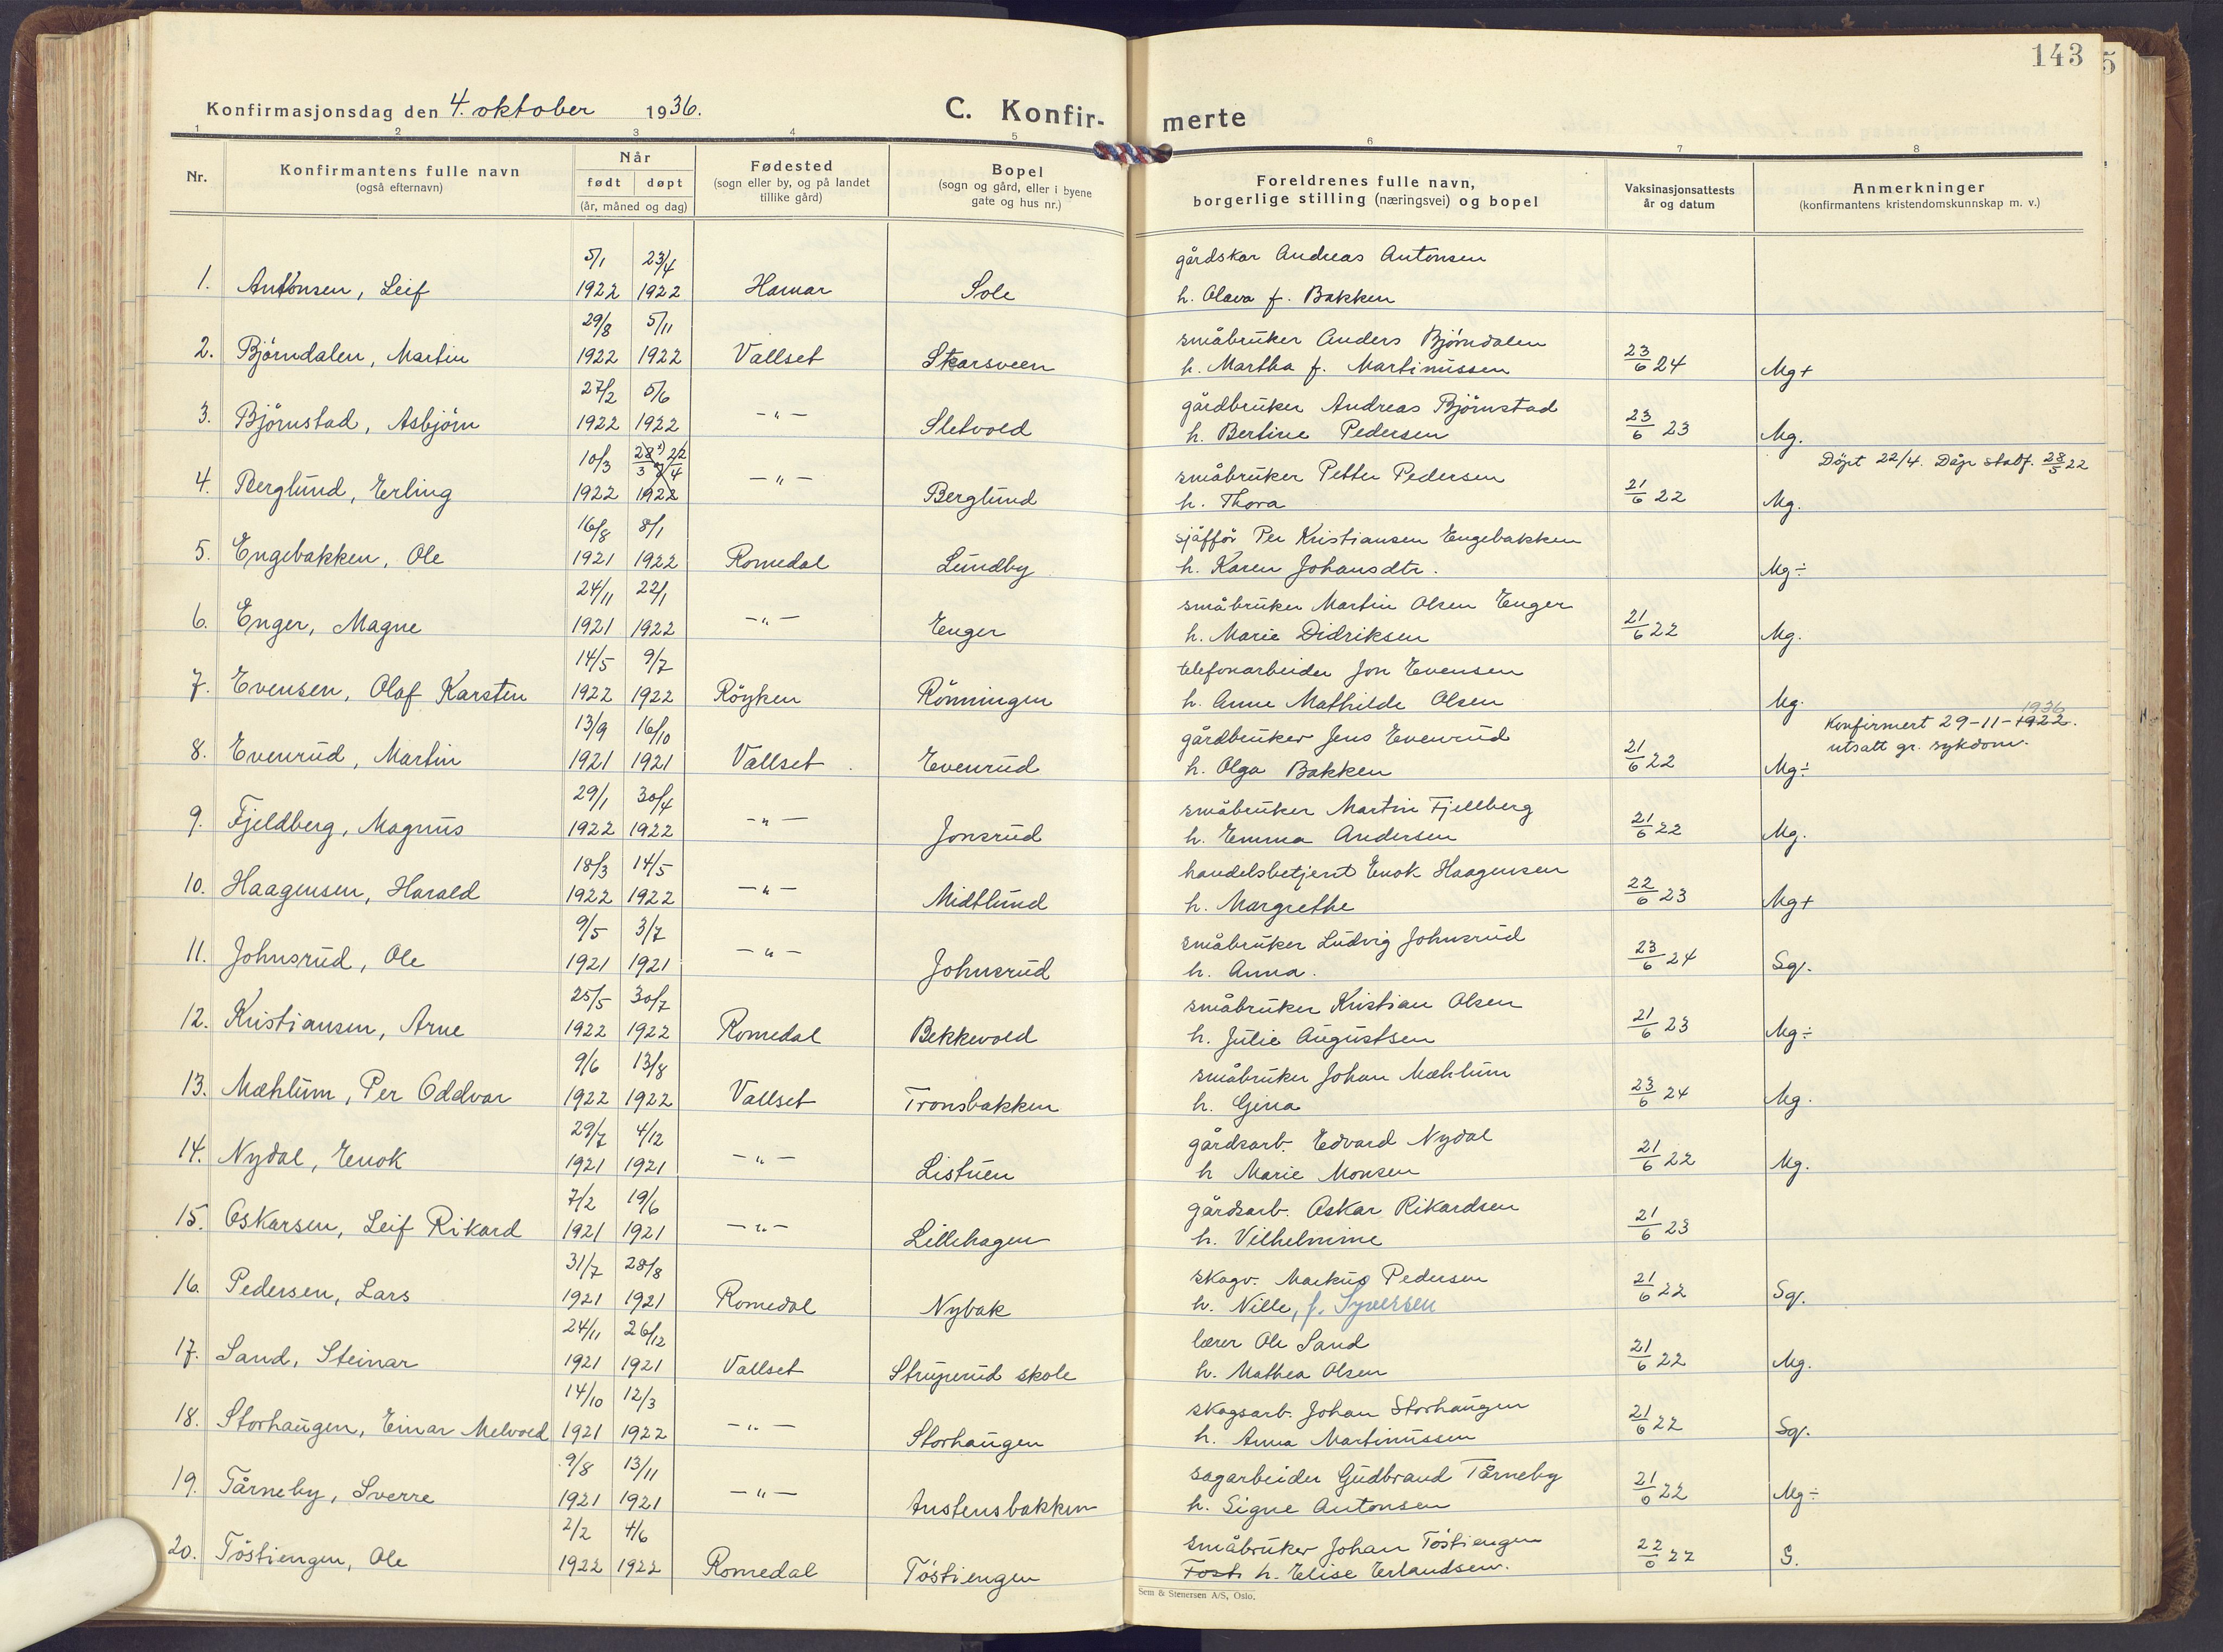 143
5
Konfirmasjonsdag den 4. oktober 1936.
C. Konfir-
merte
1 2 3 4 5 6 7 8
Nr.
Konfirmantens fulle navn
(også efternavn)
Når
født døpt
(år, måned og dag)
Fødested
(sogn eller by, og på landet
tillike gård)
Bopel
(sogn og gård, eller i byene
gate og hus nr.)
Foreldrenes fulle navn,
borgerlige stilling (næringsvei) og bopel
Vaksinasjonsattests
år og datum
Anmerkninger
(konfirmantens kristendomskunnskap m. v.)
5/1 23/4 gårdskar Andreas Antonsen
1. Antonsen, Leif 1922 1922 Hamar Sole h. Olava f. Bakken
29/8 5/11 småbruker Anders Bjørndalen
2. Bjørndalen, Martin 1922 1922 Vallset Skarsveen h. Martha f. Martinussen 23/6 24 Mg+
27/2 5/6 gårdbruker Andreas Bjørnstad
3. Bjørnstad, Asbjørn 1922 1922 -"- Sletvold h. Bertine Pedersen 23/6 23 Mg.
10/3 28/3 22/4 småbruker Petter Pedersen Døpt 22/4. Dåp stadf. 28/5 22
4. Berglund, Erling 1922 1922 -"- Berglund h. Thora 21/6 22 Mg.
16/8 8/1 sjåffør Per Kristiansen Engebakken
5. Engebakken, Ole 1921 1922 Romedal Lundby h. Karen Johansdtr. Mg÷
24/11 22/1 småbruker Martin Olsen Enger
6. Enger, Magne 1921 1922 -"- Enger h. Marie Didriksen 21/6 22 Mg.
14/5 9/7 telefonarbeider Jon Evensen
7. Evensen, Olaf Karsten 1922 1922 Røyken Rønningen h. Anne Mathilde Olsen Mg.
13/9 16/10 gårdbruker Jens Evenrud Konfirmert 29-11-1922. 1936
utsatt gr. sykdom.
8. Evenrud, Martin 1921 1921 Vallset Evenrud h. Olga Bakken 21/6 22 Mg÷
29/1 30/4 småbruker Martin Fjellberg
9. Fjeldberg, Magnus 1922 1922 -"- Jonsrud h. Emma Andersen 21/6 22 Mg.
18/3 14/5 handelsbetjent Enok Haagensen
10. Haagensen, Harald 1922 1922 -"- Midtlund h. Margrethe 22/6 23 Mg+
9/5 3/7 småbruker Ludvig Johnsrud
11. Johnsrud, Ole 1921 1921 -"- Johnsrud h. Anna. 23/6 24 Sg.
25/5 30/7 småbruker Kristian Olsen
12. Kristiansen, Arne 1922 1922 Romedal Bekkevold h. Julie Augustsen 21/6 23 Mg÷
9/6 13/8 småbruker Johan Mæhlum
13. Mæhlum, Per Oddvar 1922 1922 Vallset Tronsbakken h. Gina 23/6 24 Mg.
29/7 4/12 gårdsarb. Edvard Nydal
14. Nydal, Enok 1921 1921 -"- Listuen h Marie Monsen 21/6 22 Mg.
7/2 19/6 gårdsarb. Oskar Rikardsen
15. Oskarsen, Leif Rikard 1921 1921 -"- Lillehagen h. Vilhelmine 21/6 23
31/7 28/8 skogv. Markus Pedersen
16. Pedersen, Lars 1921 1921 Romedal Nybak h. Nille, f. Syversen 21/6 22 Sg.
24/11 26/12 lærer Ole Sand
17. Sand, Steinar 1921 1921 Vallset Struperud skole h. Mathea Olsen 21/6 22 Mg.
14/10 12/3 skogsarb. Johan Storhaugen
18. Storhaugen, Einar Melvold 1921 1922 -"- Storhaugen h. Anna Martinussen 21/6 22 Sg.
9/8 13/11 sagarbeider Gudbrand Tårneby
19. Tårneby, Sverre 1921 1921 -"- Austensbakken h. Signe Antonsen 21/6 22 Mg÷
2/2 4/6 småbruker Johan Tøstiengen
20. Tøstiengen, Ole 1922 1922 Romedal Tøstiengen Tost. h. Elise Erlandsen. 22/6 22 S.
Sem & Stenersen A/S, Oslo.